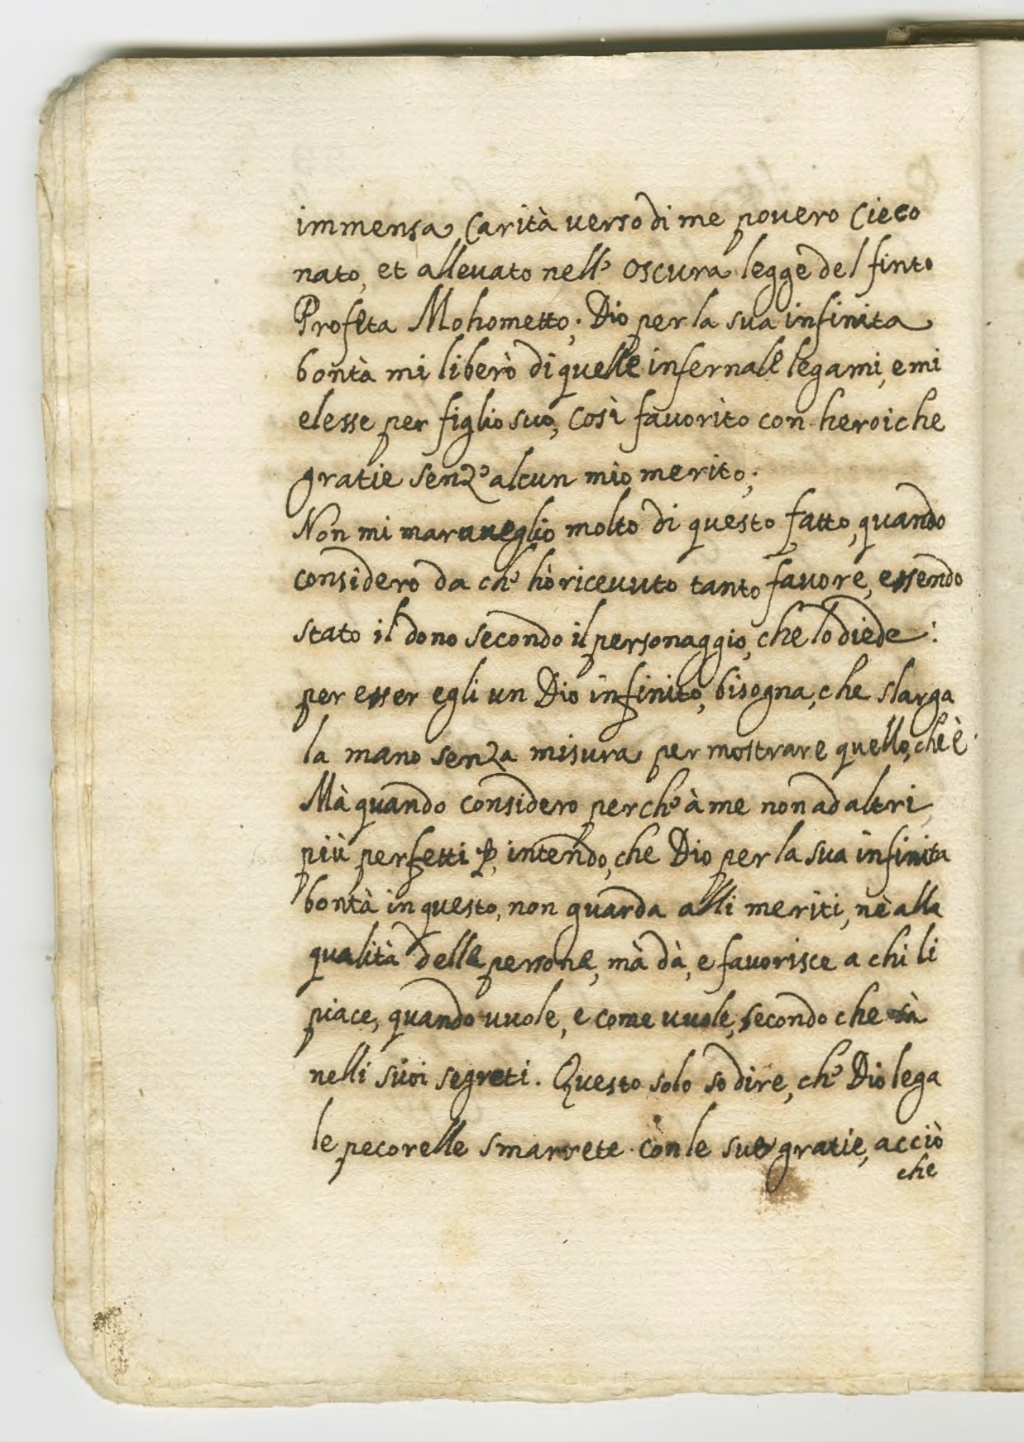 immensa Carità verso di me povero Cieco
nato, et allevato nell' oscura legge del finto
Profeta Mohometto. Dio per la sua infinita
bontà mi liberò di quelle infernale legami, e mi
elesse per figlio suo, Così favorito con heroiche
gratie senz' alcun mio merito.
Non mi maraveglio molto di questo fatto, quando
considero da ch' hò ricevuto tanto favore, essendo
stato il dono secondo il personaggio, che lo diede:
per esser egli un Dio infinito, bisogna, che slarga
la mano senza misura per mostrare quello, che è
Mà quando considero perch' à me non ad altri
più perfetti intendo, che Dio per la sua infinita
bontà in questo, non guarda alli meriti, nè alla
qualità delle persone, mà dà, e favorisce a chi li
piace, quando vuole, e come vuole, secondo che sà
nelli suoi segreti. Questo solo so dire, ch' Dio lega
le pecorelle smarrete con le sue gratie, acciò
che